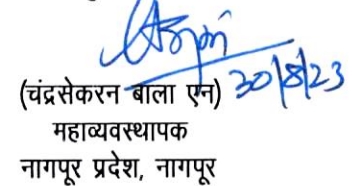 30/8/23
(चंद्रसेकरन बाला एन)
महाव्यवस्थापक
नागपूर प्रदेश, नागपूर